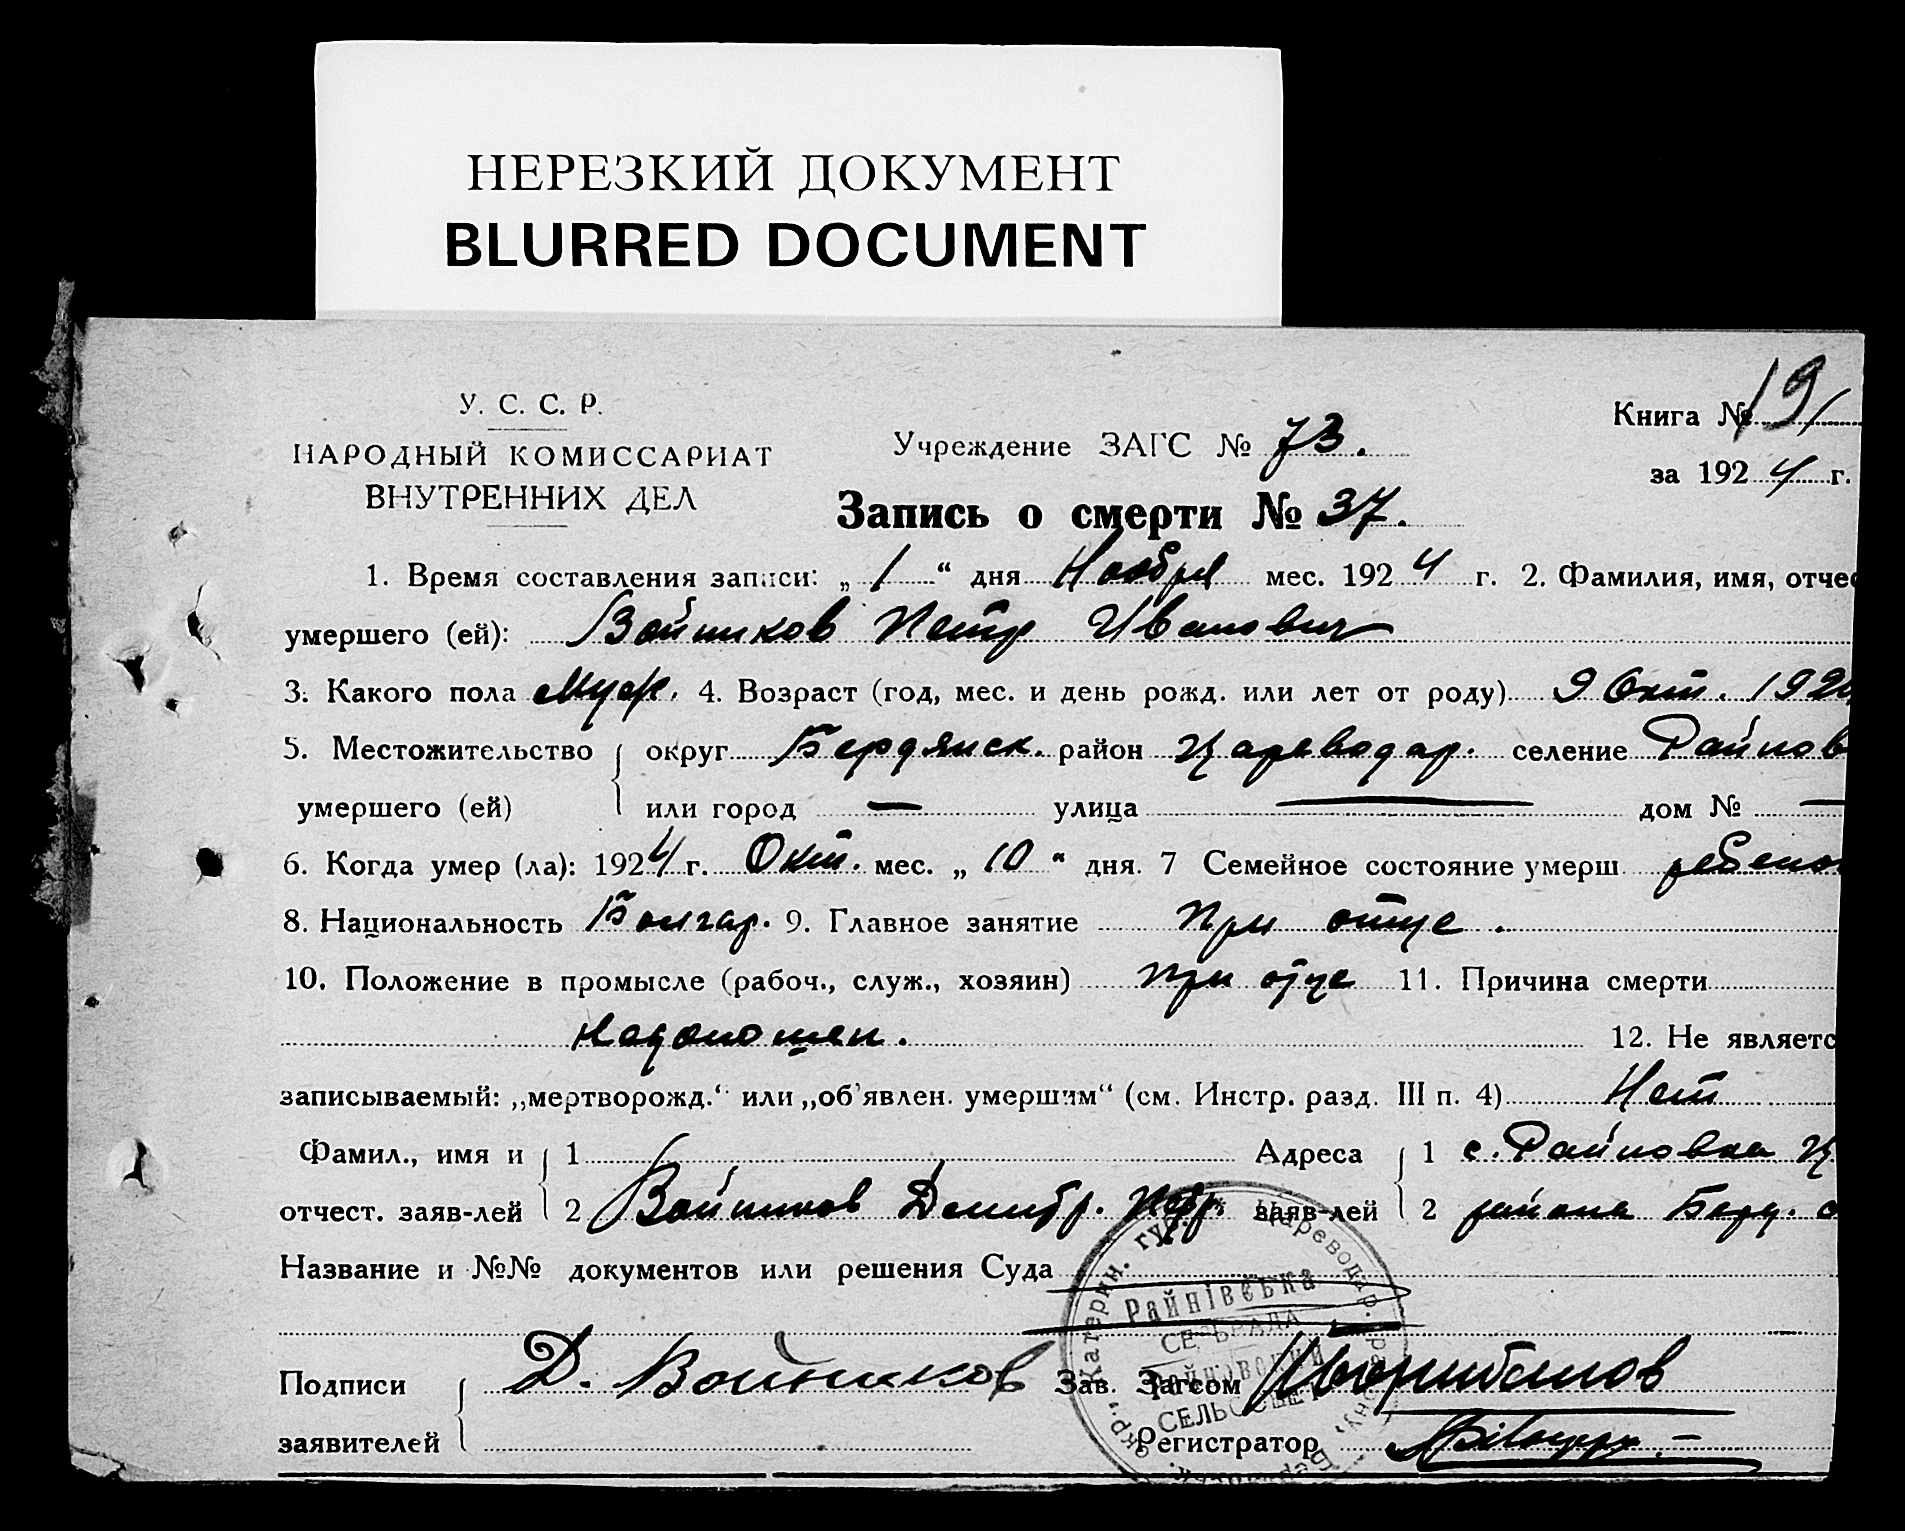 НЕРЕЗКИЙ ДОКУМЕНТ
BLURRED DOCUMENT
У. С. С. Р.
НАРОДНЫЙ КОМИССАРИАТ
ВНУТРЕННИХ ДЕЛ
Учреждение ЗАГС № 73.
Книга № 19
за 1924 г.
Запись о смерти № 37.
1. Время составления записи: „ 1 “ дня Ноября мес. 1924 г. 2. Фамилия, имя, отчес
умершего (ей): Войников Петр Иванович
3. Какого пола Муж. 4. Возраст (год, мес. и день рожд. или лет от роду) 9 Окт. 192
5. Местожительство округ Бердянск. район Цареводар. селение Райнов
умершего (ей) или город — улица — дом № —
6. Когда умер (ла): 1924 г. Окт. мес. „ 10 “ дня. 7 Семейное состояние умерш ребенок
8. Национальность Болгар. 9. Главное занятие при отце.
10. Положение в промысле (рабоч., служ., хозяин) при отце 11. Причина смерти
недоношен. 12. Не являетс
записываемый: „мертворожд.“ или „об'явлен. умершим“ (см. Инстр. разд. III п. 4) Нет
Фамил., имя и 1 Адреса 1 с. Райновка Ц
отчест. заяв-лей 2 Войников Дмитр. Петр. заяв-лей 2 района Берд. о
Название и №№ документов или решения Суда
Катерин. губ. Цареводар. району, Бердянськ. окр.,
Райнівська
СЕЛЬРАДА
Райновский
СЕЛЬСОВЕТ
Подписи Д. Войников Зав. Загсом
заявителей Регистратор